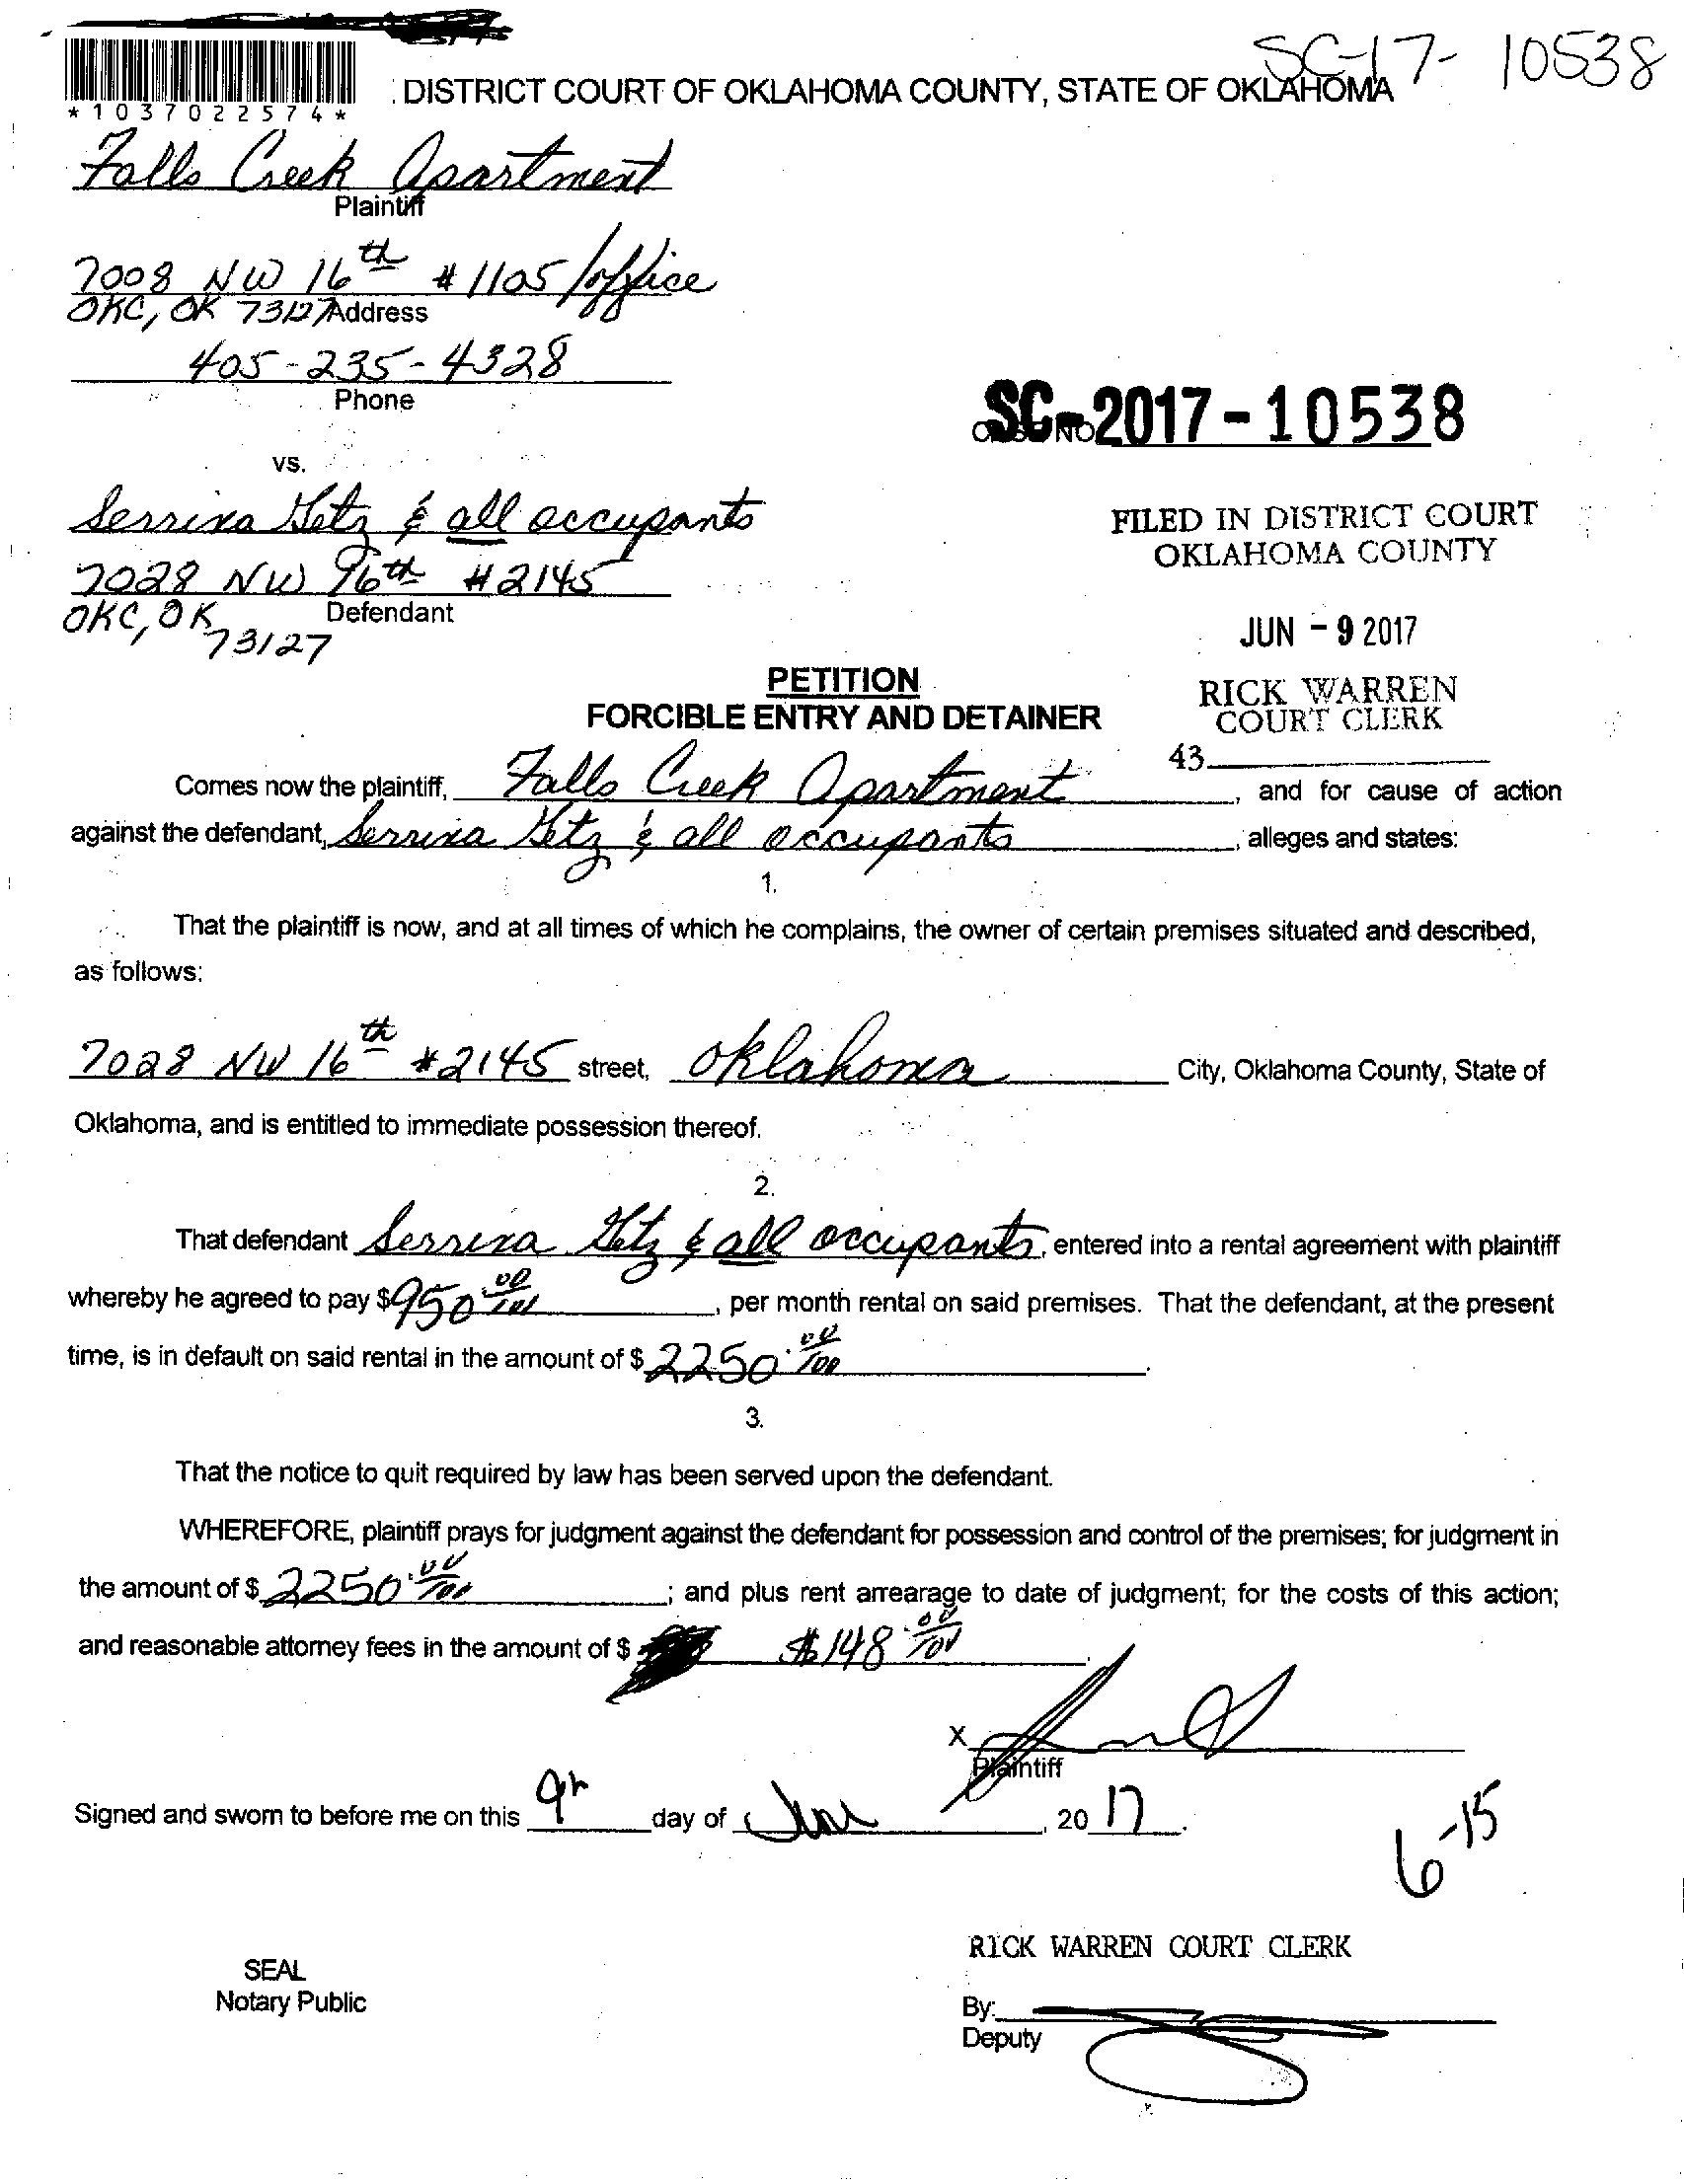 SC-17- 10538
*1037022574*
DISTRICT COURT OF OKLAHOMA COUNTY, STATE OF OKLAHOMA
Falls Creek Apartment
Plaintiff
7008 NW 16th #1105/office
OKC, OK 73127 Address
405-235-4328
Phone
SC-2017-10538
vs.
Serrina Getz & all occupants
FILED IN DISTRICT COURT
OKLAHOMA COUNTY
7028 NW 16th #2145
OKC, OK Defendant
73127
JUN - 9 2017
PETITION
FORCIBLE ENTRY AND DETAINER
RICK WARREN
COURT CLERK
43
Comes now the plaintiff, Falls Creek Apartment, and for cause of action
against the defendant, Serrina Getz & all occupants, alleges and states:
1.
That the plaintiff is now, and at all times of which he complains, the owner of certain premises situated and described,
as follows:
7028 NW 16th #2145 street, Oklahoma City, Oklahoma County, State of
Oklahoma, and is entitled to immediate possession thereof.
2.
That defendant Serrina Getz & all occupants, entered into a rental agreement with plaintiff
whereby he agreed to pay $950 00/100, per month rental on said premises. That the defendant, at the present
time, is in default on said rental in the amount of $2250.00/100.
3.
That the notice to quit required by law has been served upon the defendant.
WHEREFORE, plaintiff prays for judgment against the defendant for possession and control of the premises; for judgment in
the amount of $2250.00/100; and plus rent arrearage to date of judgment; for the costs of this action;
and reasonable attorney fees in the amount of $ $148.00/100.
X
Plaintiff
Signed and sworn to before me on this 9th day of June, 2017.
6-15
RICK WARREN COURT CLERK
SEAL
Notary Public
By:
Deputy